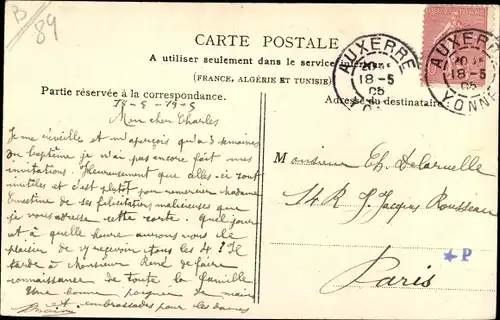 B
89
CARTE POSTALE
A utiliser seulement dans le service intérieur
(FRANCE, ALGÉRIE ET TUNISIE)
Partie réservée à la correspondance.
Adresse du destinataire
AUXERRE
18-5
05
AUXERRE
18-5
05
YONNE
18-5-1905
Mon cher Charles
Je me réveille et m'aperçois qu'à 3 semaines
du baptême je n'ai pas encore fait mes
invitations. Heureusement que elles ici sont
inutiles et c'est plutot pour remercier Madame
Ernestine de ses felicitations malicieuses que
je vous adresse cette carte. Quel jour
et à quelle heure aurons nous le
plaisir de recevoir tous les 4? Il
tarde à Monsieur René de faire
connaissance de toute la famille
Une bonne poignee de main
et embrassades pour les dames
Monsieur Ch. Delaruelle
14 R J. Jacques Rousseau
Paris
P